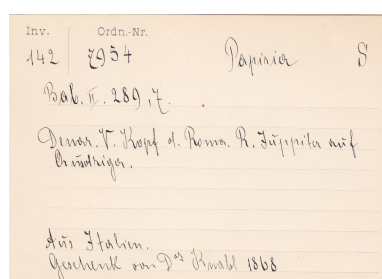 Inv. Ordn.-Nr.
142 7954 Papiria S
Bab. II. 289, 7.
Denar. V. Kopf d. Roma. R. Juppiter auf
Quadriga.
Aus Italien.
Geschenk von Dr Knabl 1868